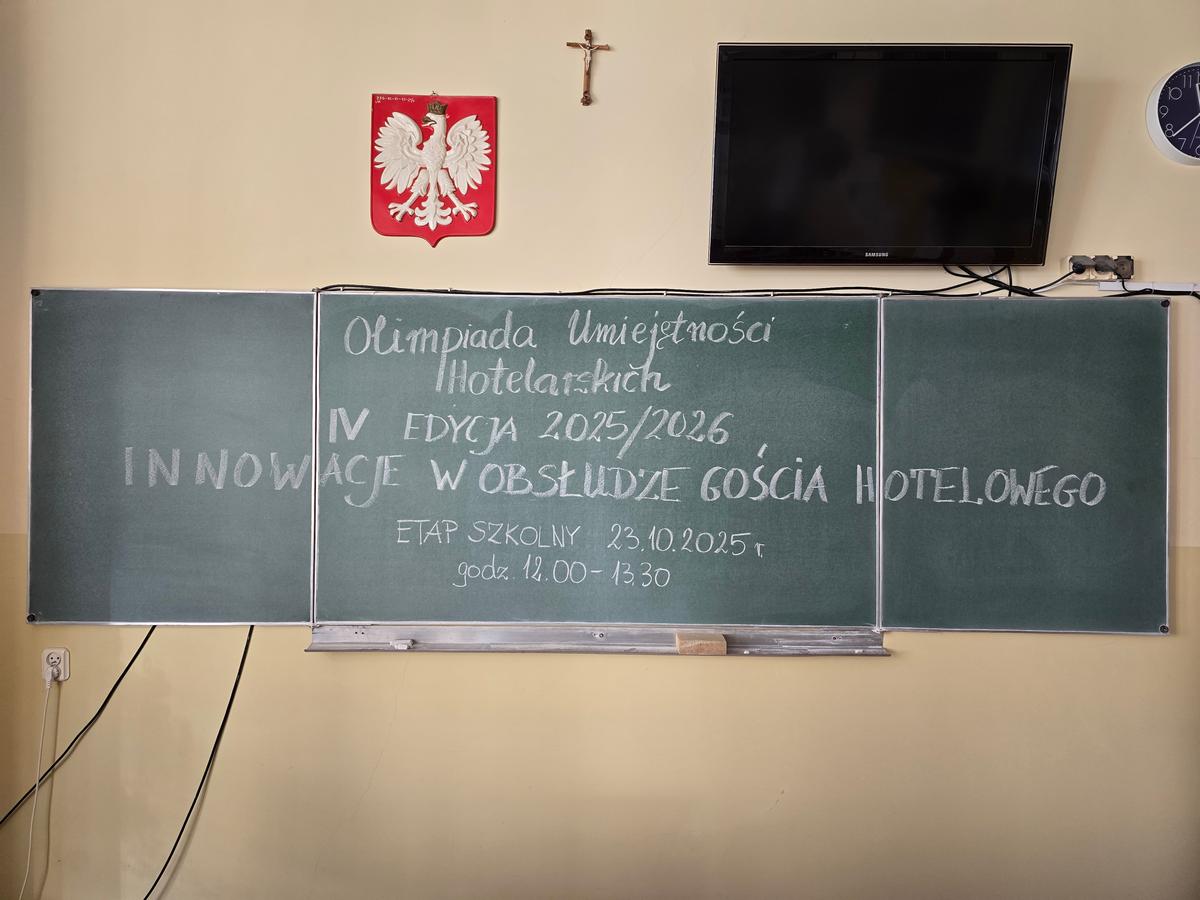 SAMSUNG
Olimpiada Umiejętności
Hotelarskich
IV EDYCJA 2025/2026
INNOWACJE W OBSŁUDZE GOŚCIA HOTELOWEGO
ETAP SZKOLNY 23.10.2025 r.
godz. 12.00-13.30